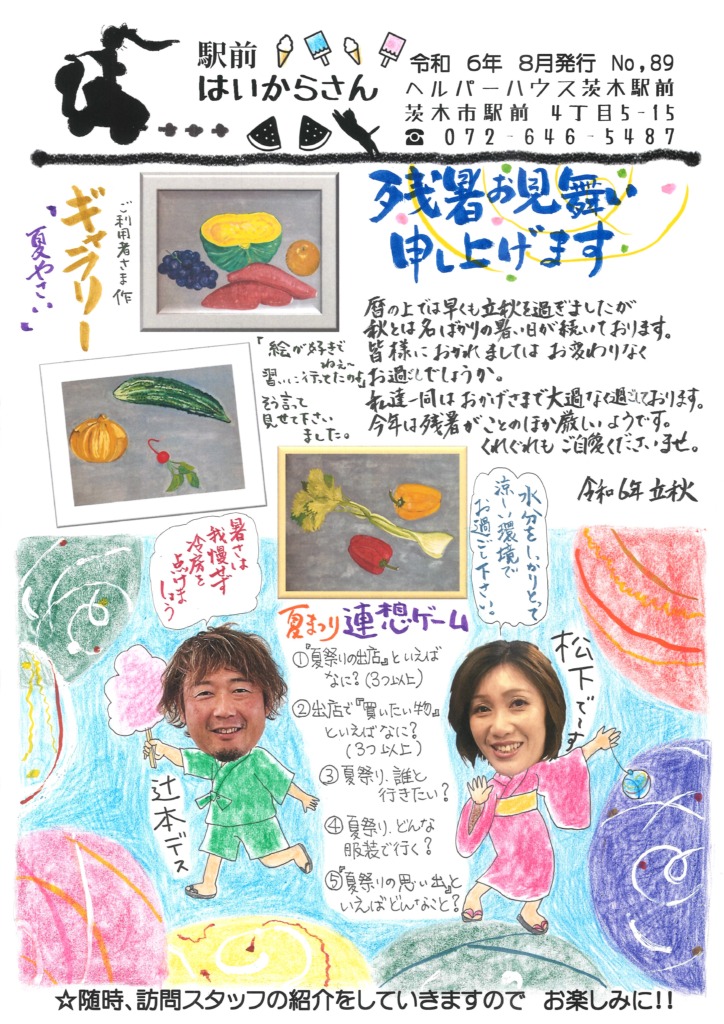 駅前
はいからさん
令和 6年 8月発行 No,89
ヘルパーハウス茨木駅前
茨木市駅前 4丁目5-15
☎ 072-646-5487
ギャラリー
「夏やさい」
ご利用者さま作
残暑お見舞い
申し上げます
暦の上では早くも立秋を過ぎましたが
秋とは名ばかりの暑い日が続いております。
皆様におかれましてはお変わりなく
お過ごしでしょうか。
私達一同はおかげさまで大過なく過ごしております。
今年は残暑がことのほか厳しいようです。
くれぐれもご自愛くださいませ。
令和6年立秋
『絵が好きで
ねぇ〜
習いに行ってたのよ』
そう言って
見せて下さい
ました。
暑さは
我慢せず
冷房を
点けま
しょう
水分をしっかりとって
涼しい環境で
お過ごし下さい。
夏まつり 連想ゲーム
①『夏祭りの出店』といえば
なに?(3つ以上)
②出店で『買いたい物』
といえばなに?
(3つ以上)
③夏祭り、誰と
行きたい?
④夏祭り、どんな
服装で行く?
⑤『夏祭りの思い出』と
いえばどんなこと?
辻本デス
松下で〜す
☆随時、訪問スタッフの紹介をしていきますので お楽しみに!!